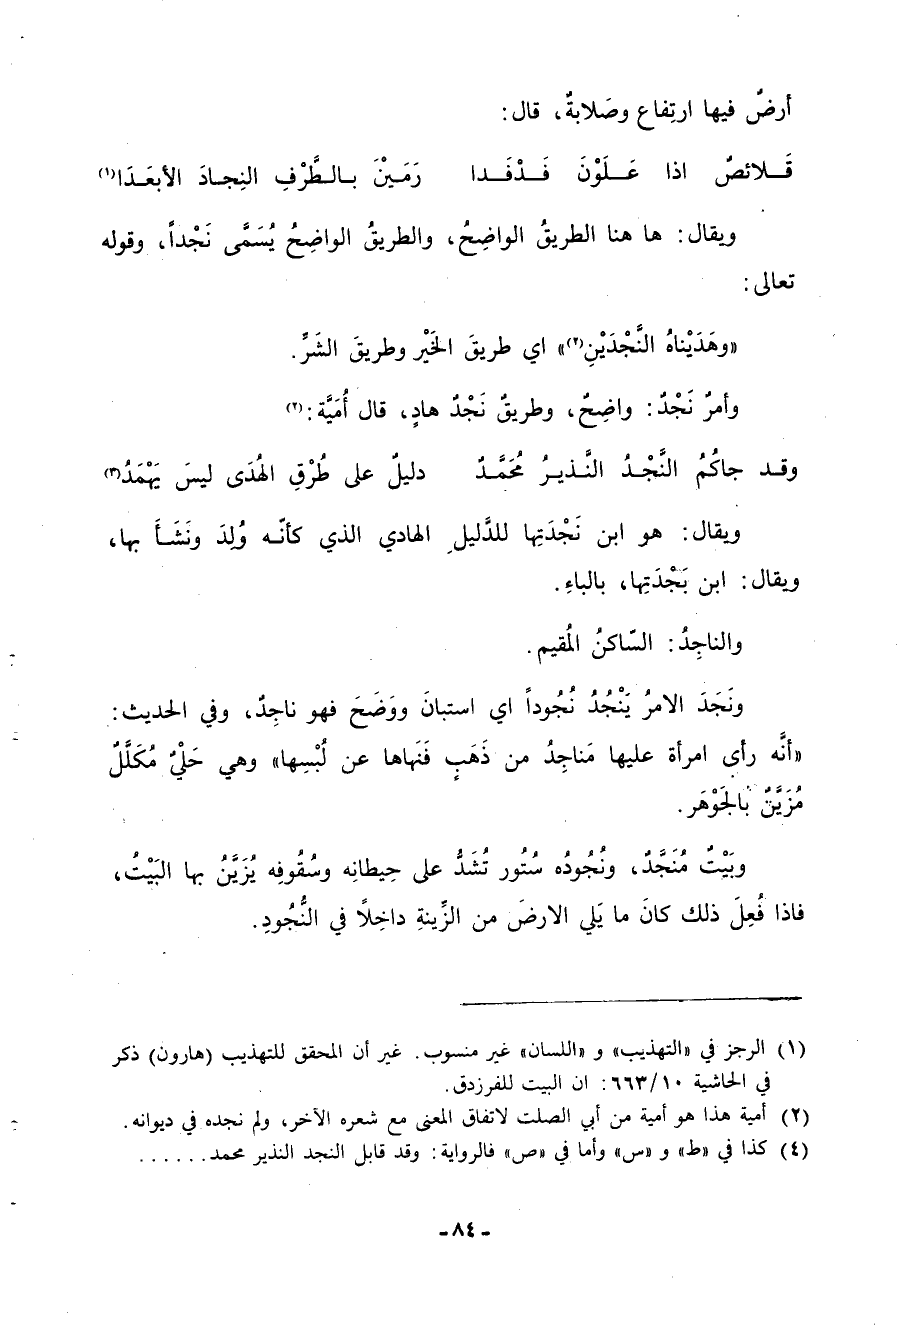 أرضٌ فيها ارتِفاع وصَلابةٌ، قال:
قَــلائصٌ اذا عَــلَوْنَ فَــدْفَــدا رَمَيْنَ بـالـطَّرْفِ النِجـادَ الأبعَـدَا(١)
ويقال: ها هنا الطريقُ الواضِحُ، والطريقُ الواضِحُ يُسَمَّى نَجْداً، وقوله
تعالى:
«وهَدَيْناهُ النَّجْدَيْنِ(٢)» اي طريقَ الخَيْر وطريقَ الشَرِّ.
وأمرٌ نَجْدٌ: واضِحٌ، وطريقٌ نَجْدٌ هادٍ، قال أُمَيَّة:(٢)
وقـد جاكُمُ النَّجْـدُ النَّـذيـرُ مُحَمَّـدٌ دليلٌ على طُرْقِ الهُدَى ليسَ يَهْمَدُ(٣)
ويقال: هو ابن نَجْدَتِها للدَّليلِ الهادي الذي كأنّـه وُلِدَ ونَشَـأَ بها،
ويقال: ابن بَجْدَتِها، بالباءِ.
والناجِدُ: السّاكنُ المُقيم.
ونَجَدَ الامرُ يَنْجُدُ نُجُوداً اي استبانَ ووَضَحَ فهو ناجِدٌ، وفي الحديث:
«أنَّه رأى امرأة عليها مَناجِدُ من ذَهَبٍ فَنَهاها عن لُبْسِها» وهي حَلْيٌ مُكَلَّلٌ
مُزَيَّنٌ بالجَوْهَر.
وبَيْتٌ مُنَجَّدٌ، ونُجُودُه سُتُور تُشَدُّ على حِيطانِه وسُقُوفِه يُزَيَّنُ بها البَيْتُ،
فاذا فُعِلَ ذلك كانَ ما يَلي الارضَ من الزِّينةِ داخِلاً في النُّجُودِ.
(١) الرجز في «التهذيب» و «اللسان» غير منسوب. غير أن المحقق للتهذيب (هارون) ذكر
في الحاشية ٦٦٣/١٠: ان البيت للفرزدق.
(٢) أمية هذا هو أمية من أبي الصلت لاتفاق المعنى مع شعره الآخر، ولم نجده في ديوانه.
(٤) كذا في «ط» و «س» وأما في «ص» فالرواية: وقد قابل النجد النذير محمد......
- ٨٤ -